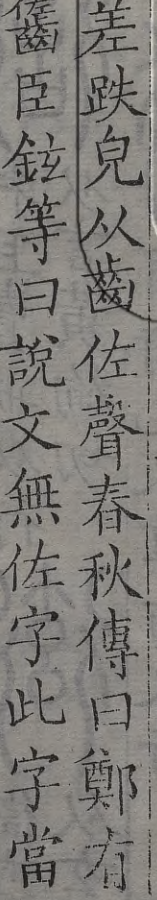 差跌皃从齒佐聲春秋傳曰鄭有
臣鉉等曰說文無佐字此字當